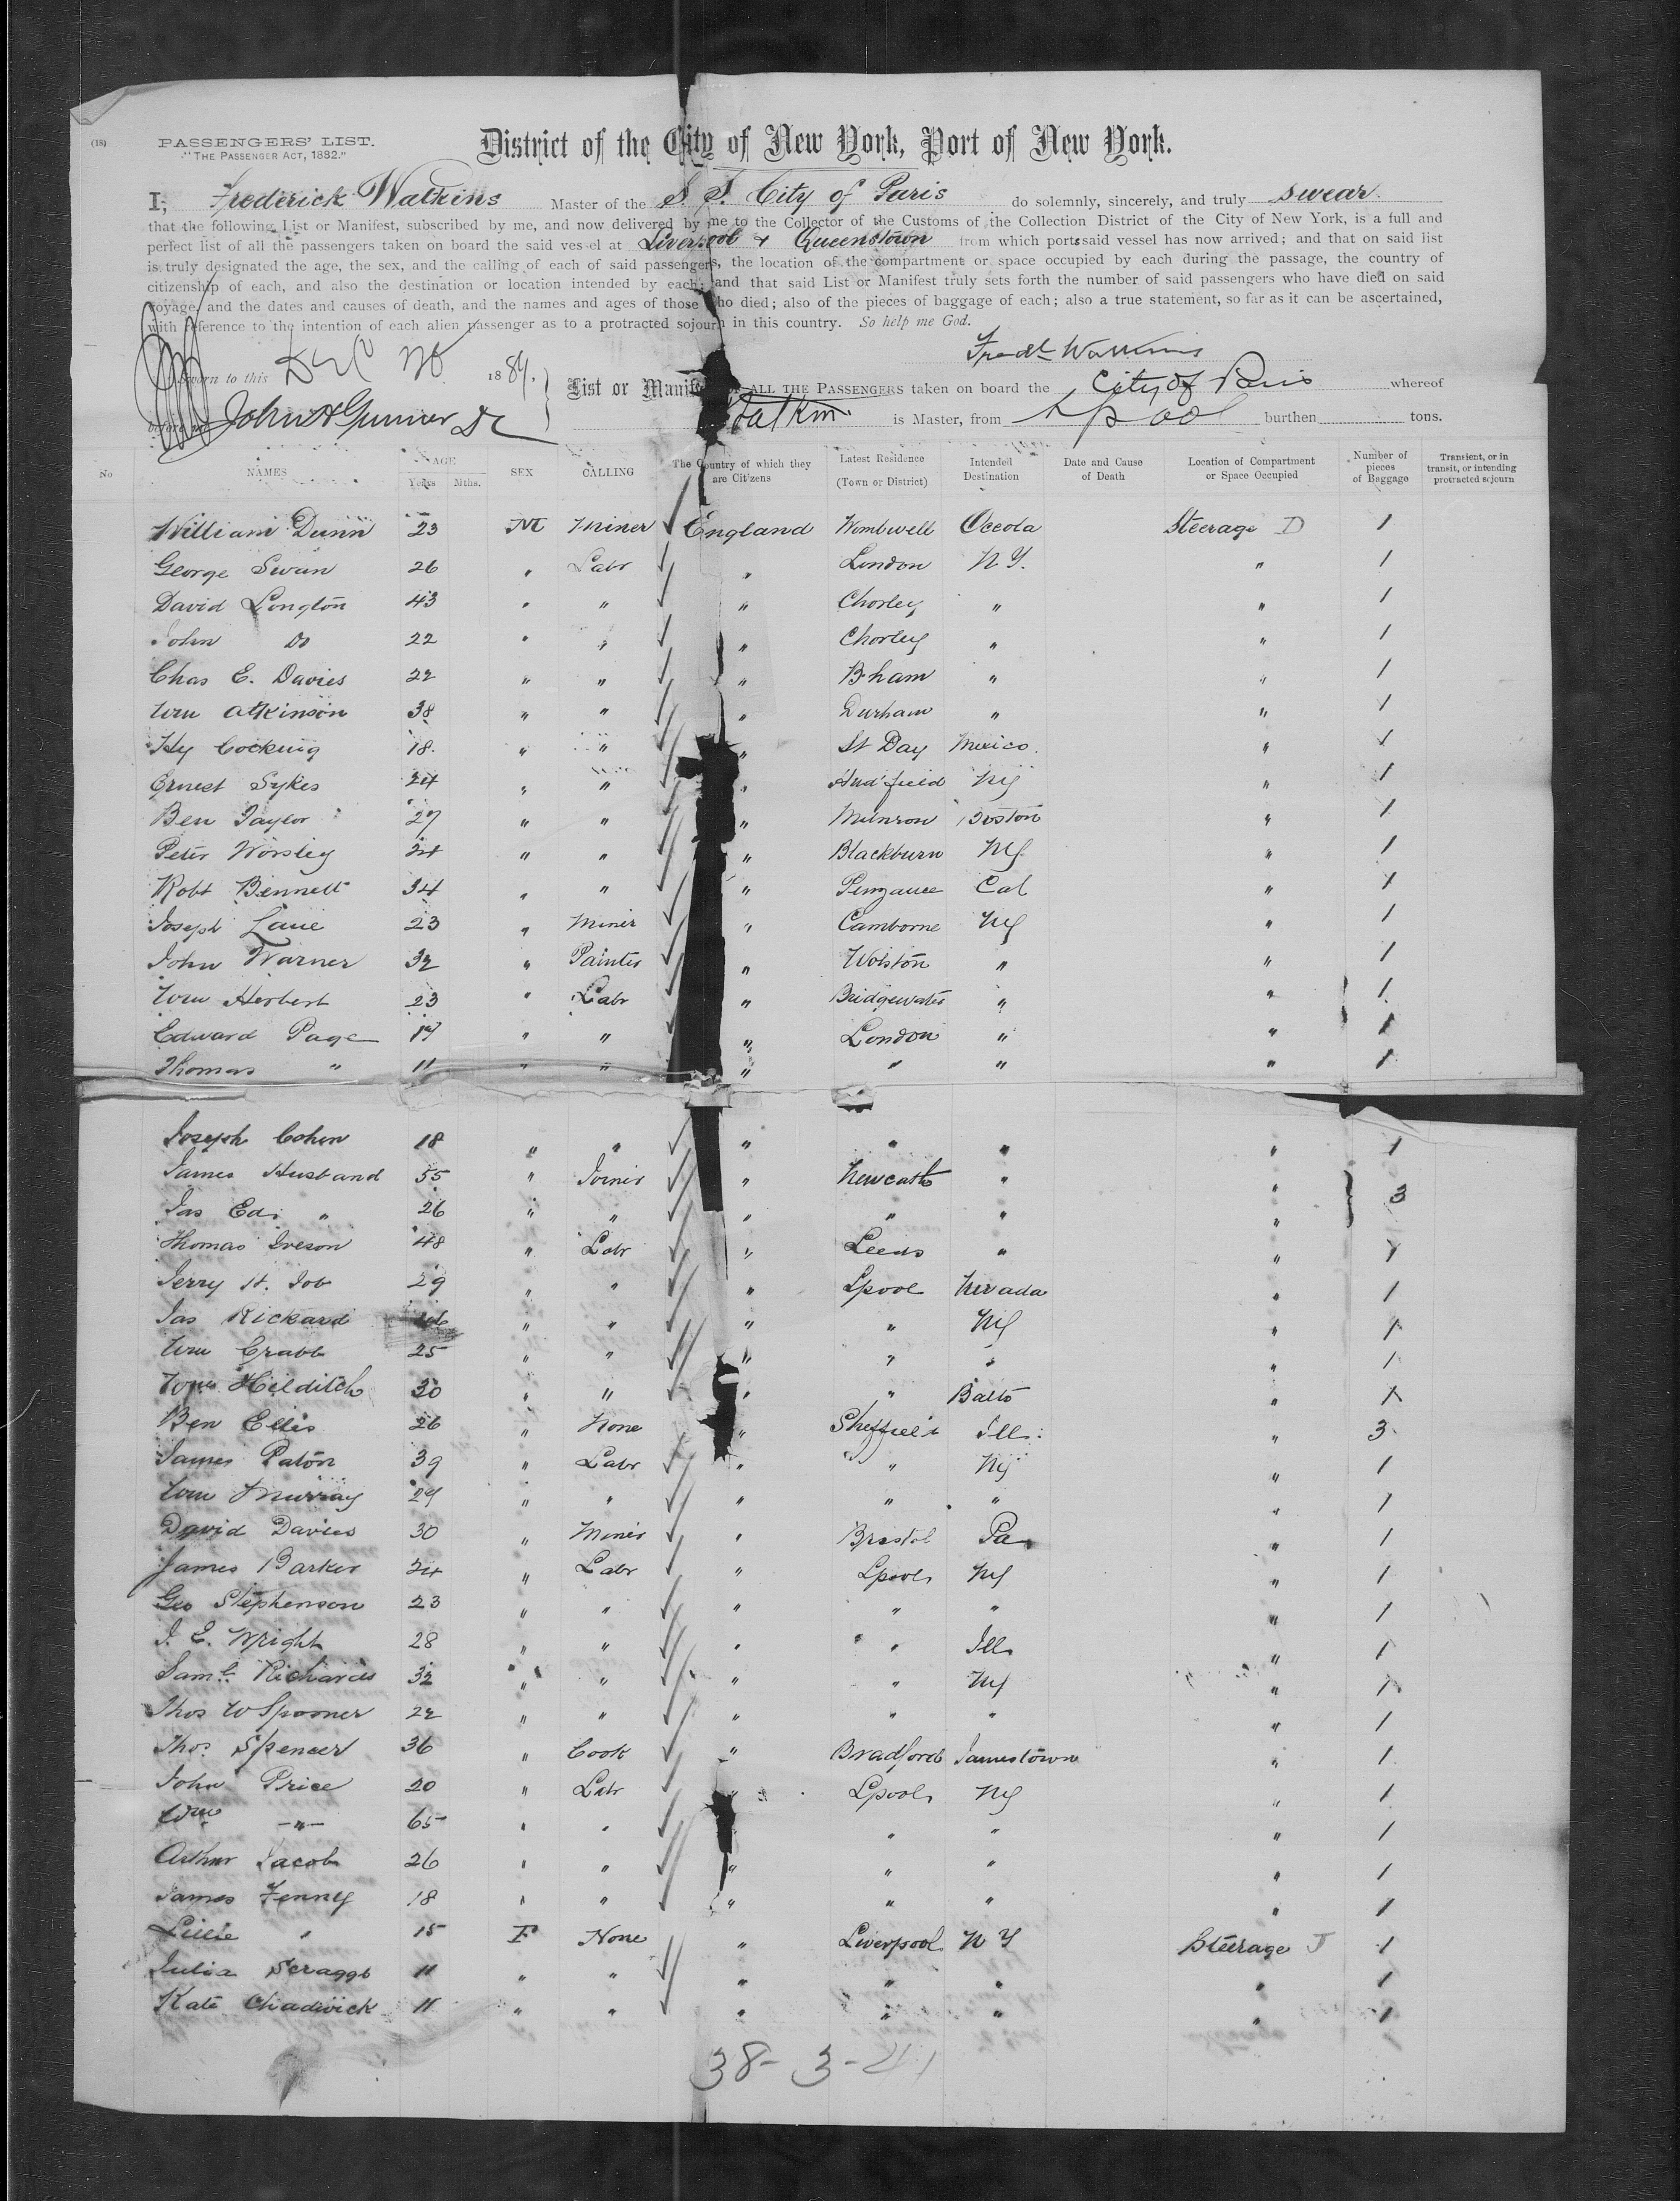 (18)
PASSENGERS' LIST.
"THE PASSENGER ACT, 1882."
District of the City of New York, Port of New York.
I, Frederick Watkins Master of the S. S. City of Paris do solemnly, sincerely, and truly swear
that the following List or Manifest, subscribed by me, and now delivered by me to the Collector of the Customs of the Collection District of the City of New York, is a full and
perfect list of all the passengers taken on board the said vessel at Liverpool & Queenstown from which ports said vessel has now arrived; and that on said list
is truly designated the age, the sex, and the calling of each of said passengers, the location of the compartment or space occupied by each during the passage, the country of
citizenship of each, and also the destination or location intended by each; and that said List or Manifest truly sets forth the number of said passengers who have died on said
voyage, and the dates and causes of death, and the names and ages of those who died; also of the pieces of baggage of each; also a true statement, so far as it can be ascertained,
with reference to the intention of each alien passenger as to a protracted sojourn in this country. So help me God.
Fredk Watkins
Sworn to this Dec 1889.
List or Manifest OF ALL THE PASSENGERS taken on board the City of Paris whereof
before Watkins is Master, from Lpool burthen tons.
No NAMES AGE Years Mths. SEX CALLING The Country of which they are Citizens Latest Residence (Town or District) Intended Destination Date and Cause of Death Location of Compartment or Space Occupied Number of pieces of Baggage Transient, or in transit, or intending protracted sojourn
William Dunn 23 M Miner England Wombwell Oceola Steerage D 1
George Swan 26 " Labr " London N Y. " 1
David Longton 43 " " " Chorley " " 1
John Do 22 " " " Chorley " " 1
Chas E. Davies 22 " " " Bham " " 1
Wm Atkinson 38 " " " Durham " " 1
Hy Cocking 18 " " " St Day Mexico " 1
Ernest Sykes 24 " " " Hud'field NY " 1
Ben Taylor 27 " " " Boston " 1
Peter Worsley 24 " " " Blackburn NY " 1
Robt Bennett 34 " " " Penzance Cal " 1
Joseph Lane 23 " Miner " Camborne NY " 1
John Warner 32 " Painter " Wolston " " 1
Wm Herbert 23 " Labr " Bridgewater " " 1
Edward Page 19 " " " London " " 1
Thomas " 11 " " " " " " 1
Joseph Cohen 18 " " " " " " 1
James Husband 55 " Joiner " Newcastle " " 3
Jas Ed. " 26 " " " " " "
Thomas Iveson 48 " Labr " Leeds " " 1
Jerry H. Job 29 " " " Lpool Nevada " 1
Jas Rickard " " " " NY " 1
Wm Crabb 25 " " " " " " 1
Wm Hilditch 30 " " " " Balto " 1
Ben Ellis 26 " None " Sheffield Ill. " 3
James Paton 39 " Labr " " NY " 1
Wm Murray 29 " " " " " " 1
David Davies 30 " Miner " Bristol Pa " 1
James Barker 24 " Labr " Lpool NY " 1
Geo Stephenson 23 " " " " " " 1
J. E. Wright 28 " " " " Ill " 1
Saml Richards 32 " " " " NY " 1
Thos W Spooner 22 " " " " " " 1
Thos. Spencer 36 " Cook " Bradford Jamestown " 1
John Price 20 " Labr " Lpool NY " 1
Wm -"- 65 " " " " " 1
Arthur Jacob 26 " " " " " " 1
James Fenny 18 " " " " " " 1
Lillie " 15 F None " Liverpool N Y Steerage J 1
Julia Scraggs 11 " " " " " " 1
Kate Chadwick 11 " " " " " " 1
38-3-41